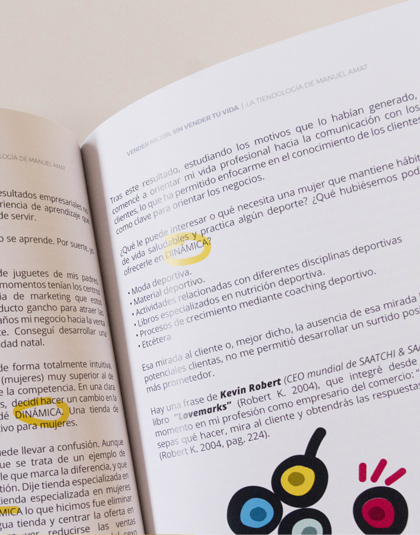 LOGÍA DE MANUEL AMAT
esultados empresariales no
riencia de aprendizaje que
de servir.
o se aprende. Por suerte, yo
de juguetes de mis padres,
momentos tenían los centros
ia de marketing que estos
ducto gancho para atraer las
años mi negocio hacia la venta
te. Conseguí desarrollar una
dad natal.
de forma totalmente intuitiva,
(mujeres) muy superior al de
e la competencia. En una clara
s, decidí hacer un cambio en la
dé DINÁMICA. Una tienda de
tivo para mujeres.
uede llevar a confusión. Aunque
que se trata de un ejemplo de
le que marca la diferencia, y que
tión. Dije tienda especializada en
tienda especializada en mujeres
MICA lo que hicimos fue eliminar
gua tienda y centrar la oferta en
reducirse las ventas
VENDER SIN VENDER TU VIDA | LA TIENDOLOGÍA DE MANUEL AMAT
Tras este resultado, estudiando los motivos que lo habían generado,
comencé a orientar mi vida profesional hacia la comunicación con los
clientes, lo que ha permitido enfocarme en el conocimiento de los clientes
como clave para orientar los negocios.
¿Qué le puede interesar o qué necesita una mujer que mantiene hábit
de vida saludables y practica algún deporte? ¿Qué hubiésemos pod
ofrecerle en DINÁMICA?
• Moda deportiva.
• Material deportivo.
• Actividades relacionadas con diferentes disciplinas deportivas
• Libros especializados en nutrición deportiva.
• Procesos de crecimiento mediante coaching deportivo.
• Etcétera
Esa mirada al cliente o, mejor dicho, la ausencia de esa mirada
potenciales clientas, no me permitió desarrollar un surtido posi
más prometedor.
Hay una frase de Kevin Robert (CEO mundial de SAATCHI & SAA
libro "Lovemarks" (Robert K. 2004), que integré desde
momento en mi profesión como empresario del comercio: "
sepas qué hacer, mira al cliente y obtendrás las respuestas
(Robert K. 2004, pag. 224).